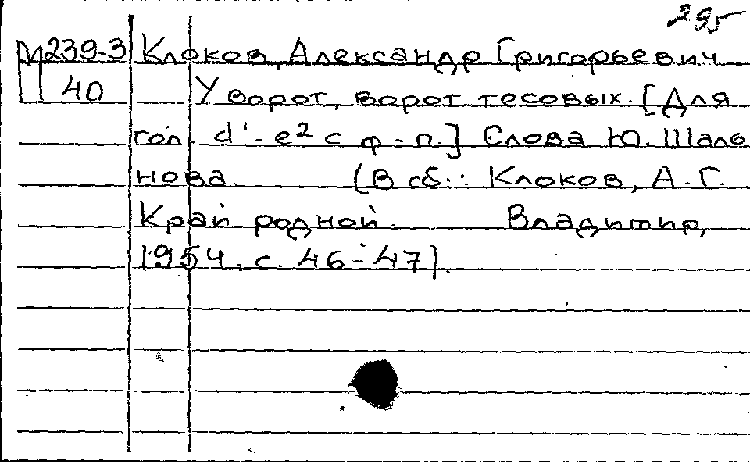 295
М239-3 Клоков, Александр Григорьевич
40 У ворот, ворот тесовых. [Для
гол. d'-e² с ф-п.] Слова Ю. Шаль
нова (В сб.: Клоков, А.Г.
Край родной. Владимир,
1954, с 46-47).